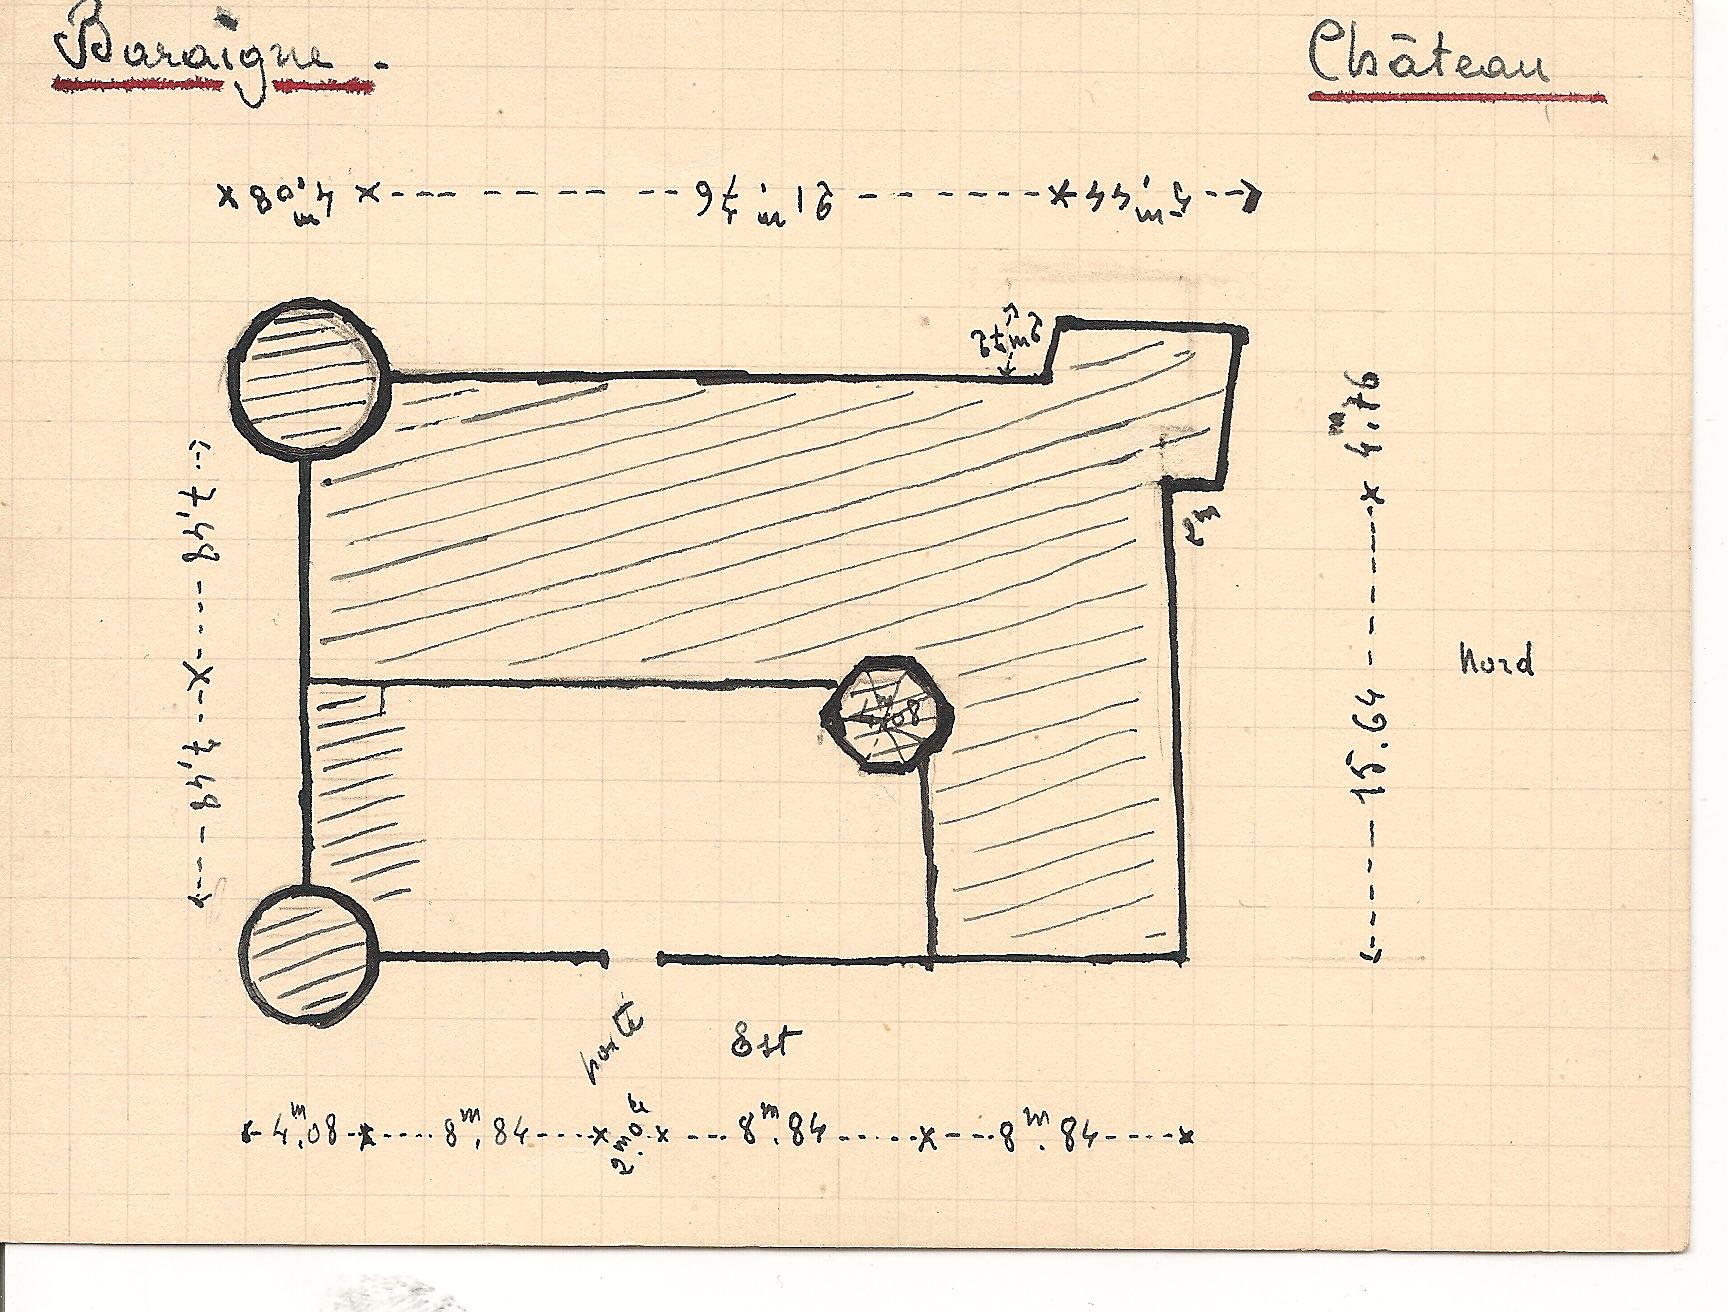 Baraigne.
Château
4m.08
21m.76
5m.44
2m72
4m.76
7.48
7.48
2m
15.64
Nord
4m.08
porte
Est
4m.08
8m.84
8m.84
8m.84